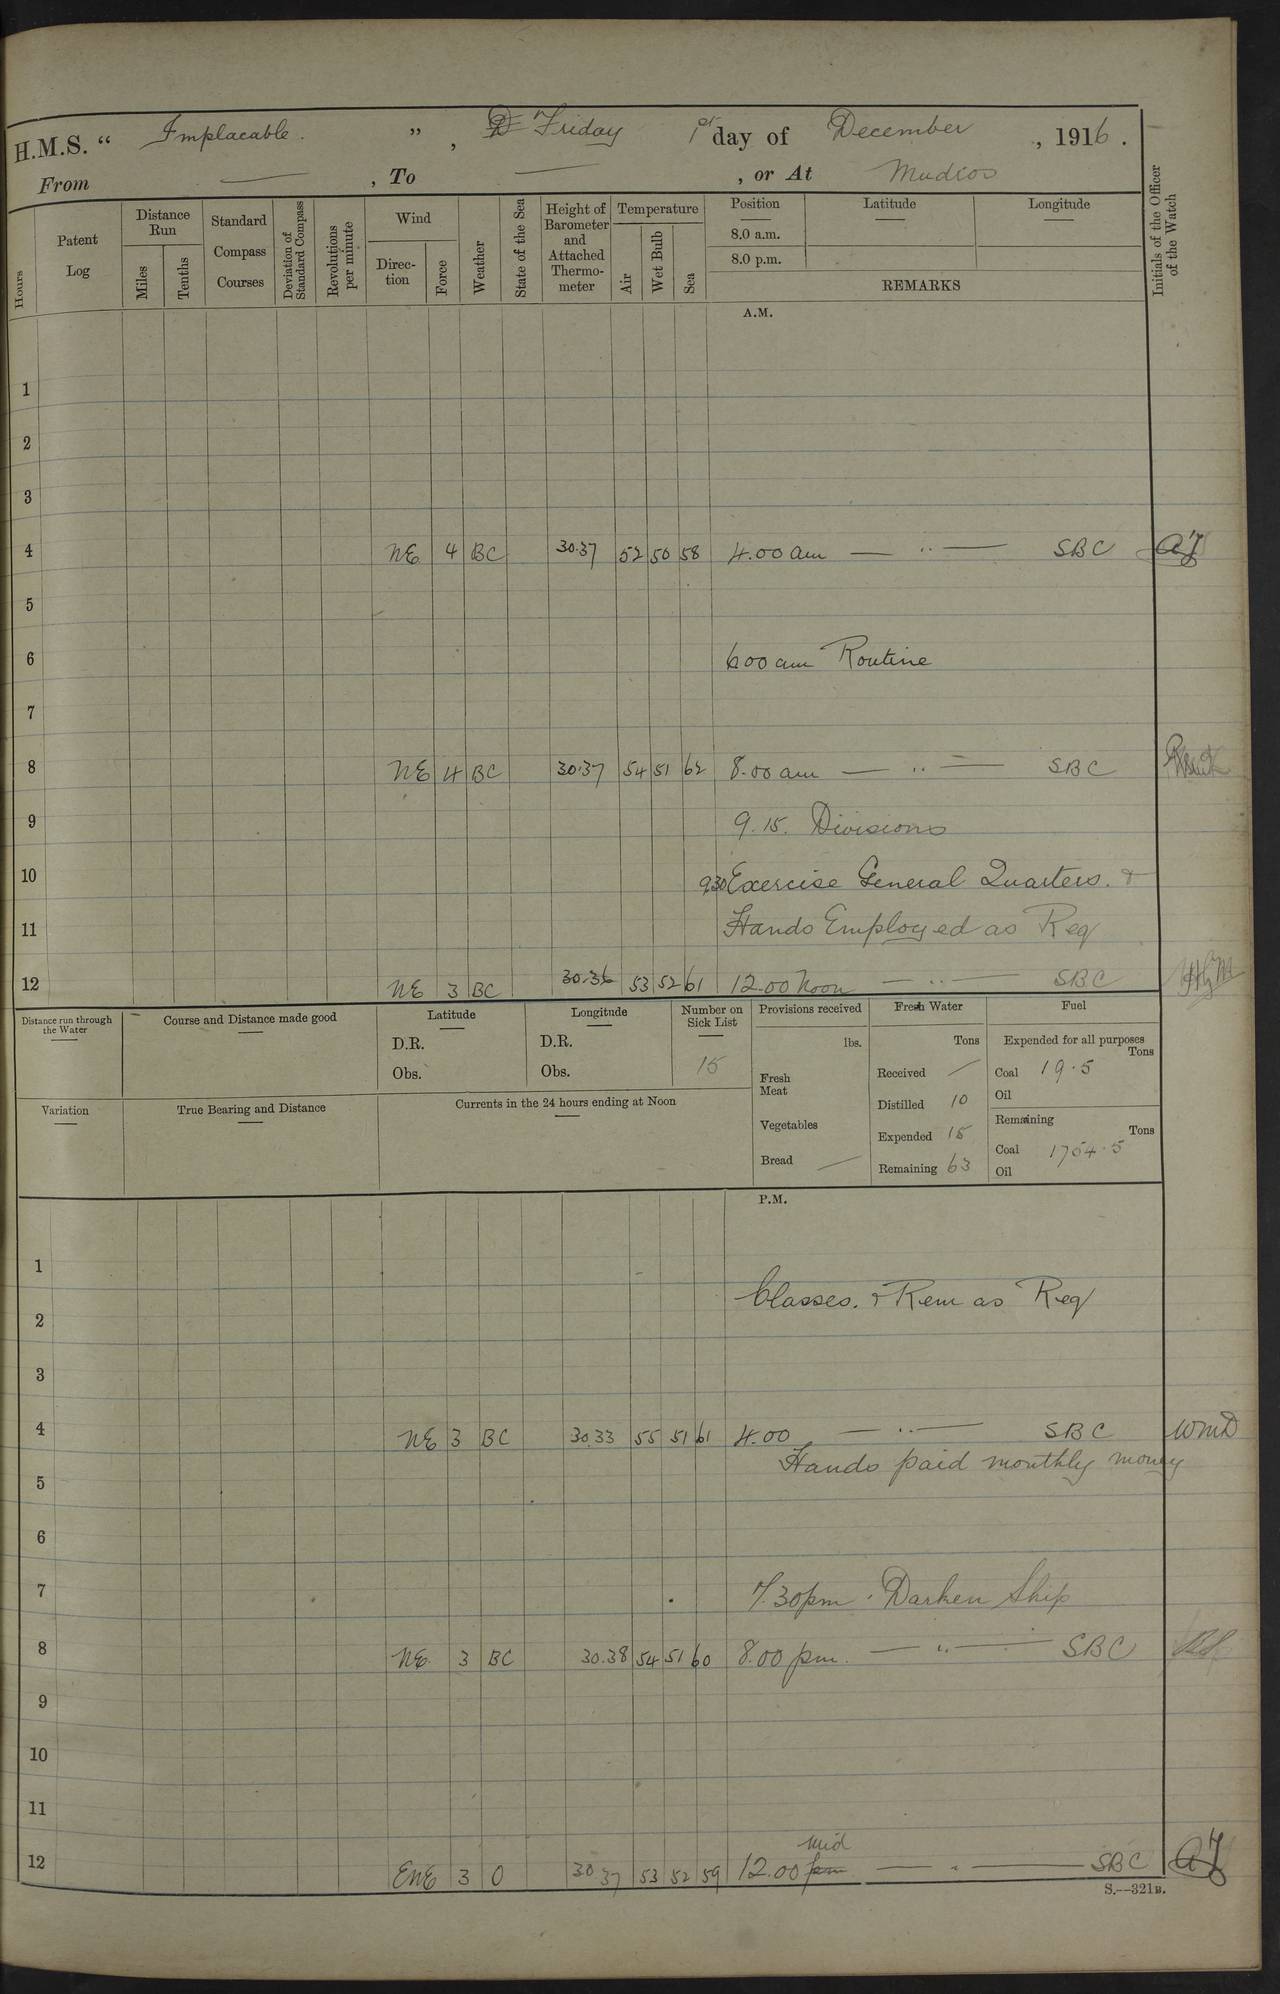 H.M.S. “ Implacable. ”, Friday 1st day of December, 1916.
From — , To — , or At Mudios
Hours
Patent Log
Distance Run
Miles
Tenths
Standard Compass Courses
Deviation of Standard Compass
Revolutions per minute
Wind
Direction
Force
Weather
State of the Sea
Height of Barometer and Attached Thermometer
Temperature
Air
Wet Bulb
Sea
Position Latitude Longitude
8.0 a.m.
8.0 p.m.
REMARKS
Initials of the Officer of the Watch
A.M.
1
2
3
4 NE 4 BC 30.37 52 50 58 4.00 am — .. — SBC AJ
5
6 6.00 am Routine
7
8 NE 4 BC 30.37 54 51 62 8.00 am — .. — SBC
9 9.15. Divisions
10 9.30 Exercise General Quarters. &
11 Hands Employed as Req
12 NE 3 BC 30.36 53 52 61 12.00 Noon — .. — SBC
Distance run through the Water
Course and Distance made good
Latitude
D.R.
Obs.
Longitude
D.R.
Obs.
Number on Sick List
15
Variation
True Bearing and Distance
Currents in the 24 hours ending at Noon
Provisions received
lbs.
Fresh Meat
Vegetables
Bread —
Fresh Water
Tons
Received —
Distilled 10
Expended 15
Remaining 63
Fuel
Expended for all purposes
Tons
Coal 19.5
Oil
Remaining
Tons
Coal 1754.5
Oil
P.M.
1
Classes. & Rem as Req
2
3
4 NE 3 BC 30.33 55 51 61 4.00 — .. — SBC WMD
Hands paid monthly money
5
6
7 7.30pm. Darken Ship
8 NE. 3 BC 30.38 54 51 60 8.00 pm. — .. — SBC
9
10
11
mid
12 ENE 3 O 30.37 53 52 59 12.00 pm — .. — SBC AJ
S.—321B.